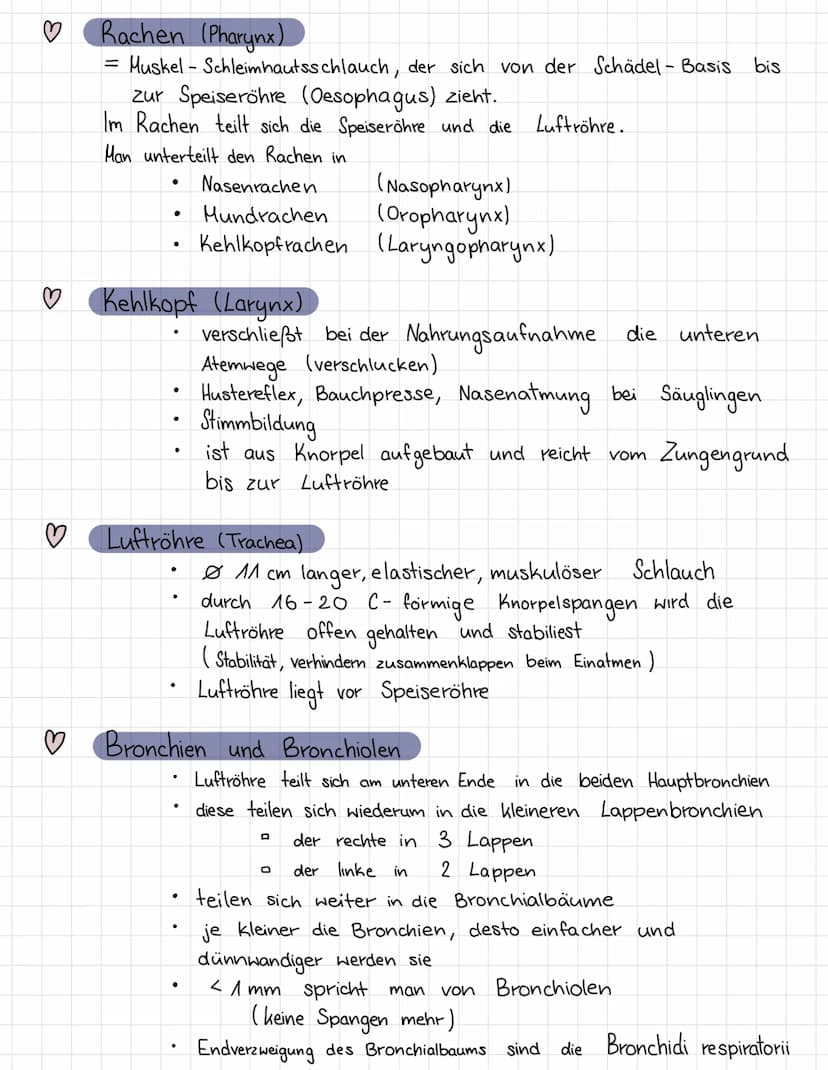 Rachen (Pharynx)
= Muskel-Schleimhautsschlauch, der sich von der Schädel-Basis bis
zur Speiseröhre (Oesophagus) zieht.
Im Rachen teilt sich die Speiseröhre und die Luftröhre.
Man unterteilt den Rachen in
• Nasenrachen (Nasopharynx)
• Mundrachen (Oropharynx)
• Kehlkopfrachen (Laryngopharynx)
Kehlkopf (Larynx)
• verschließt bei der Nahrungsaufnahme die unteren
Atemwege (verschlucken)
• Hustereflex, Bauchpresse, Nasenatmung bei Säuglingen
• Stimmbildung
• ist aus Knorpel aufgebaut und reicht vom Zungengrund
bis zur Luftröhre
Luftröhre (Trachea)
• Ø 11 cm langer, elastischer, muskulöser Schlauch
• durch 16-20 C-förmige Knorpelspangen wird die
Luftröhre offen gehalten und stabiliest
(Stabilität, verhindern zusammenklappen beim Einatmen)
• Luftröhre liegt vor Speiseröhre
Bronchien und Bronchiolen
• Luftröhre teilt sich am unteren Ende in die beiden Hauptbronchien
• diese teilen sich wiederum in die kleineren Lappenbronchien
▫ der rechte in 3 Lappen
▫ der linke in 2 Lappen
• teilen sich weiter in die Bronchialbäume
• je kleiner die Bronchien, desto einfacher und
dünnwandiger werden sie
• < 1mm spricht man von Bronchiolen
(keine Spangen mehr)
• Endverzweigung des Bronchialbaums sind die Bronchidi respiratorii